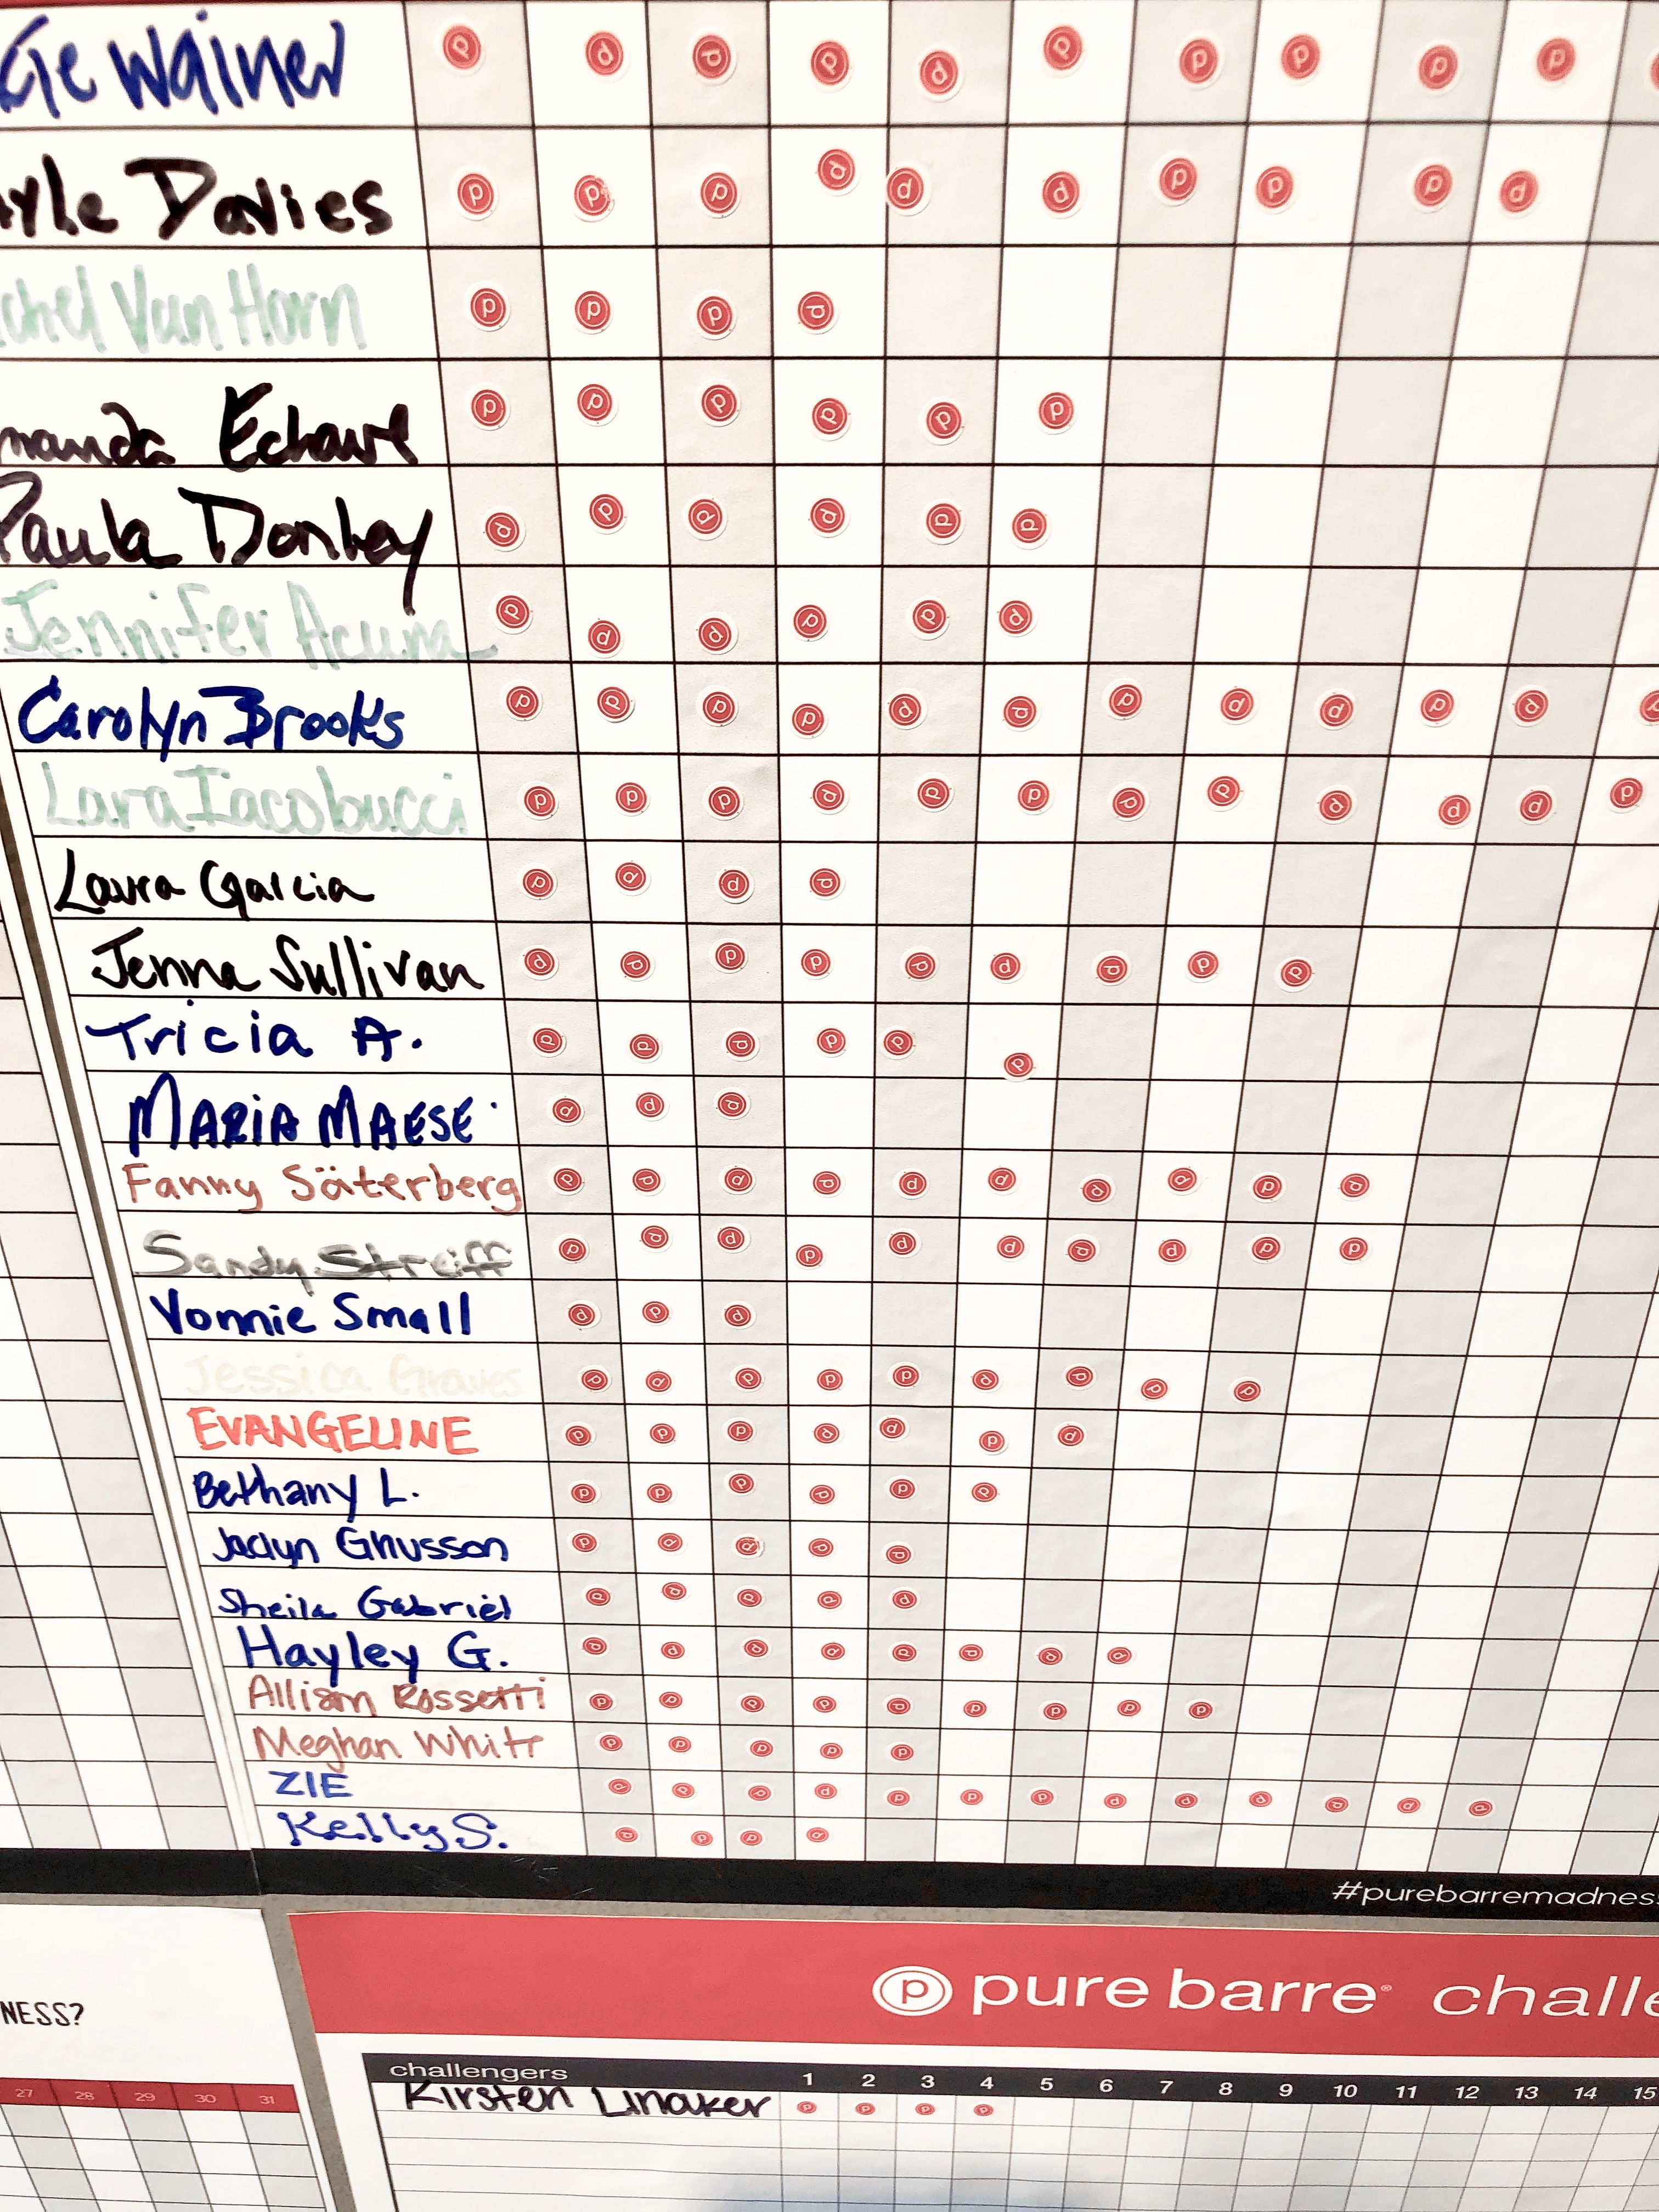 Wainer
Davies
Van Horn
Echave
Paula Donley
Jennifer Acuna
Carolyn Brooks
Lara Iacobucci
Laura Garcia
Jenna Sullivan
Tricia A.
MARIA MAESE
Fanny Säterberg
Sandy Streiff
Vonnie Small
Jessica Graves
EVANGELINE
Bethany L.
Jaclyn Gnusson
Sheila Gabriel
Hayley G.
Allison Rossetti
Meghan White
ZIE
Kelly S.
#purebarremadness
NESS?
27 28 29 30 31
p pure barre® challe
challengers 1 2 3 4 5 6 7 8 9 10 11 12 13 14 15
Kirsten Linaker